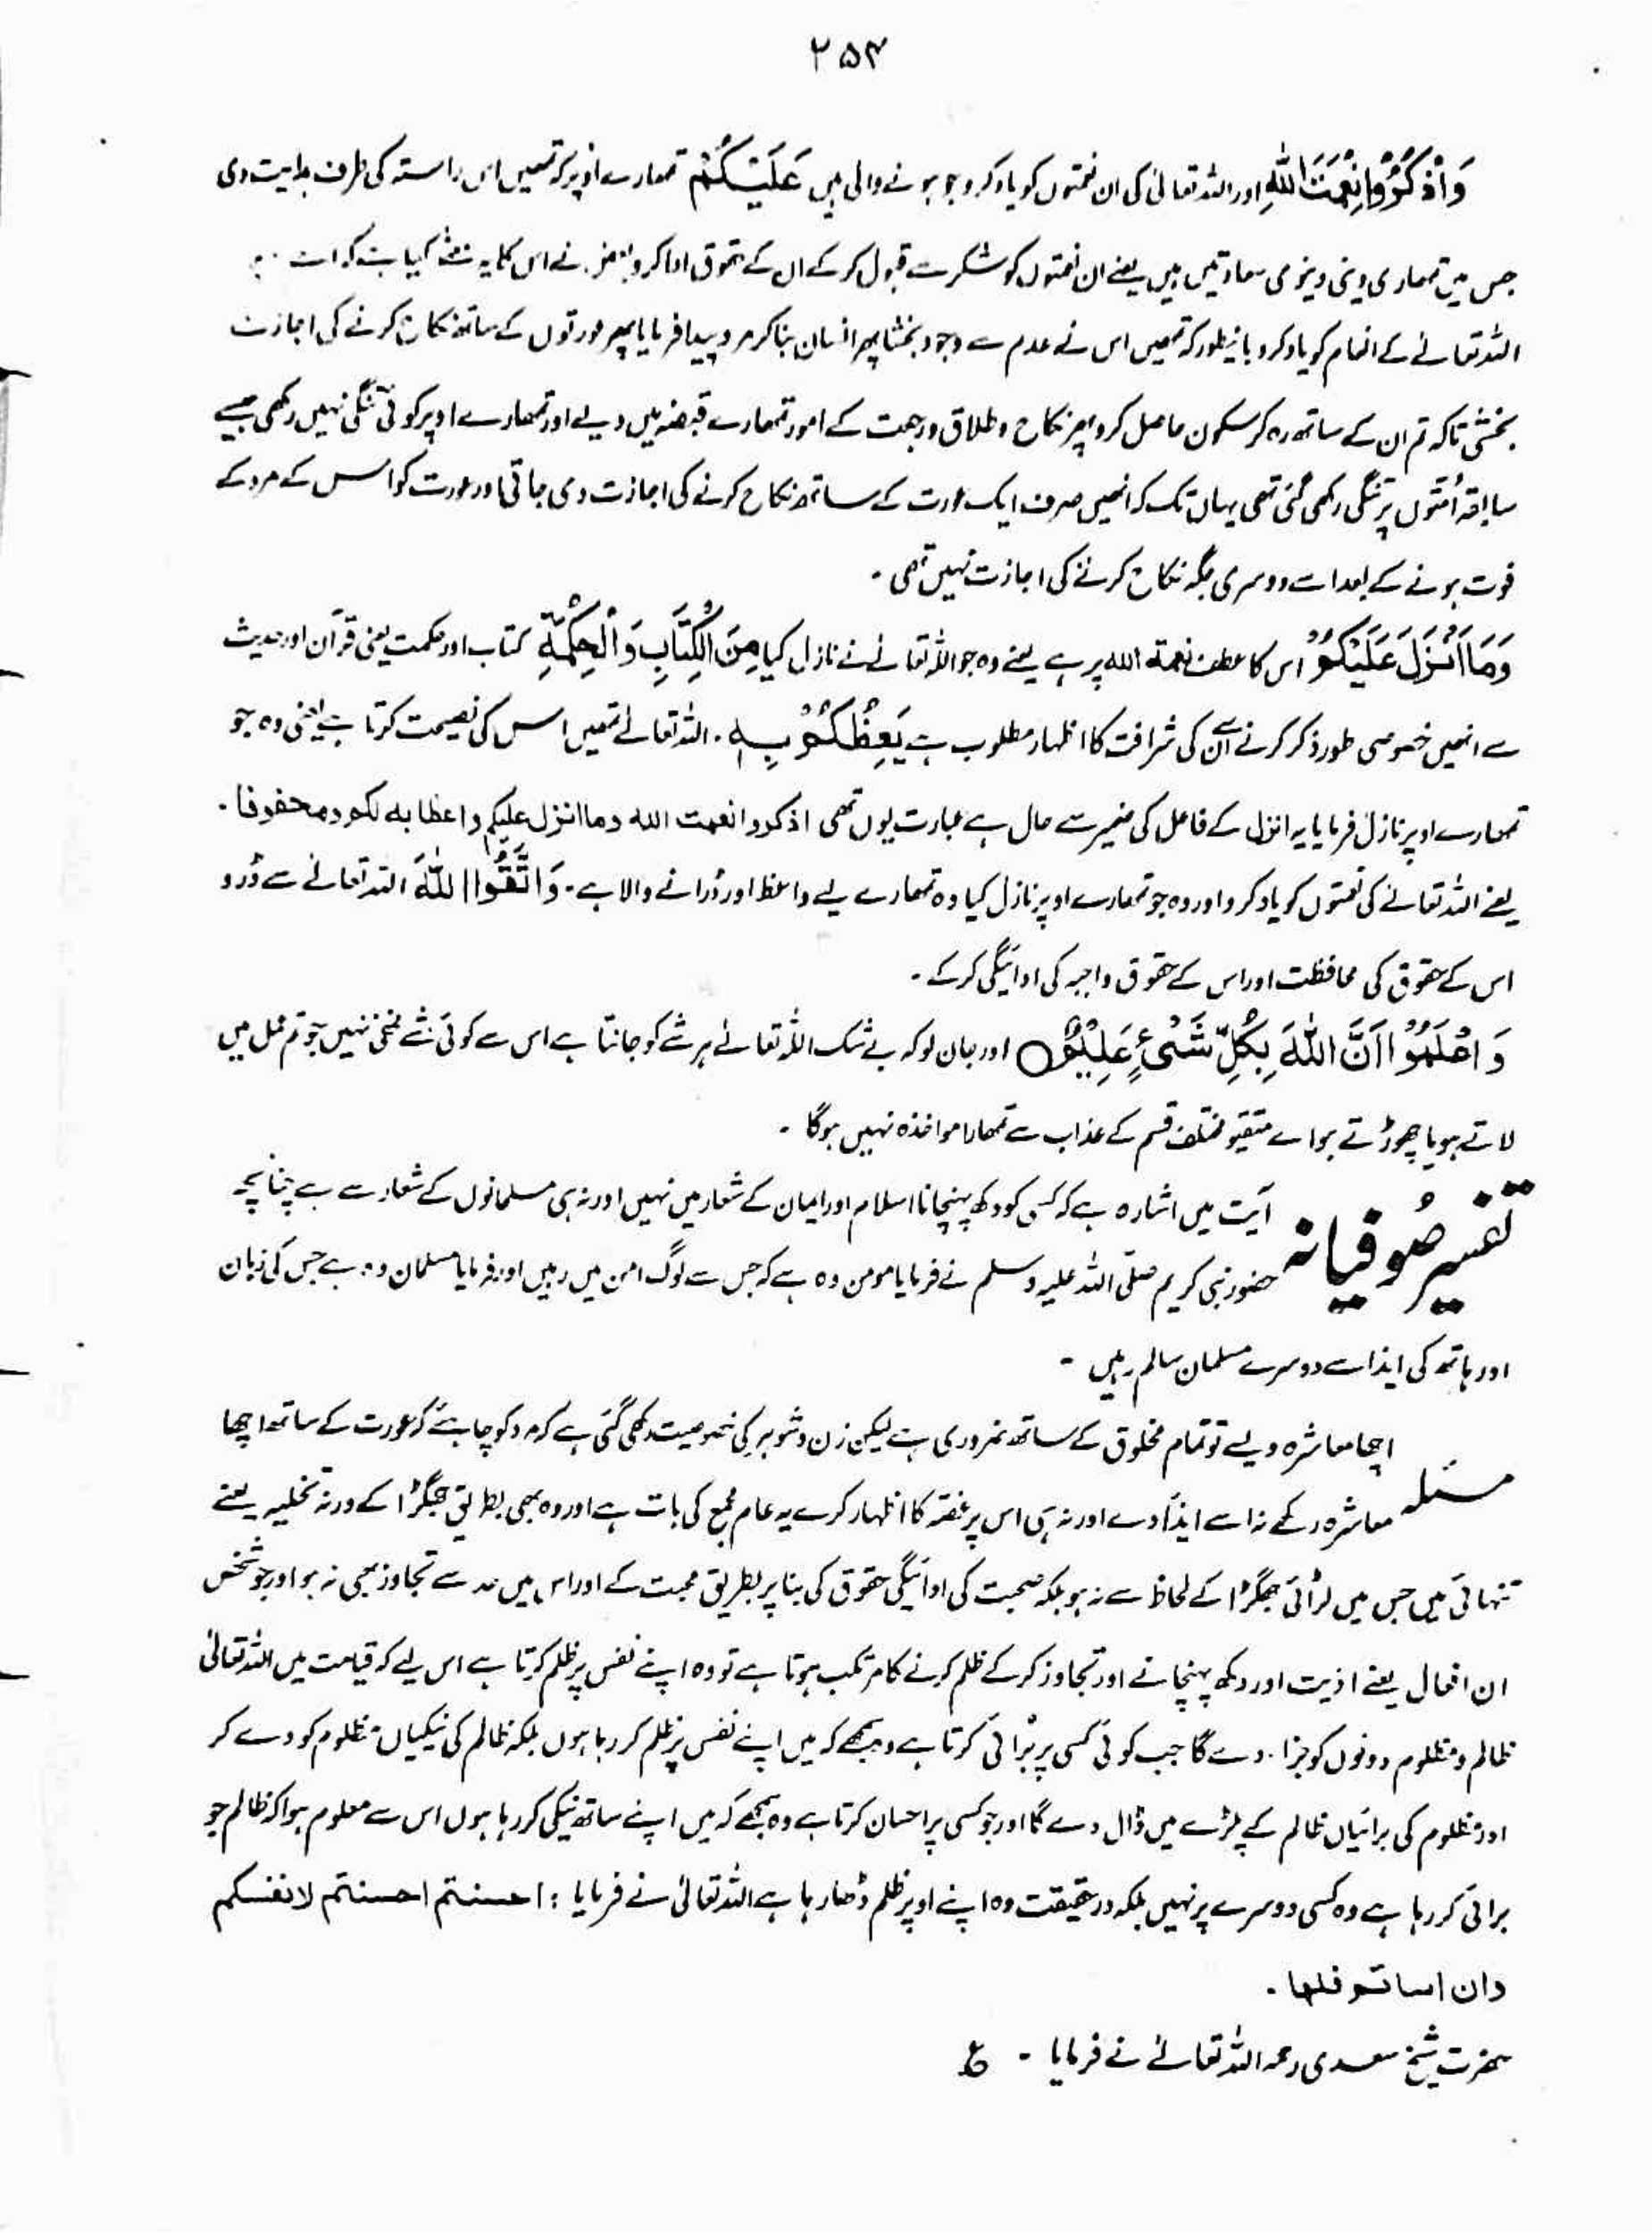 ۲۵۴
وَاذْكُرُوْا نِعْمَتَ اللّٰهِ اور اللہ تعالیٰ کی ان نعمتوں کو یاد کرو جو ہونے والی ہیں عَلَيْكُمْ تمھارے اوپر کہ تمھیں اس راستہ کی طرف ہدایت دی
جس میں تمھاری دینی دنیوی سعادتیں ہیں یعنے ان نعمتوں کو شکر سے قبول کر کے ان کے حقوق ادا کرو بعض نے اس کا یہ معنٰے کیا ہے کہ
اللہ تعالےٰ کے انعام کو یاد کرو بانیطور کہ تمھیں اس نے عدم سے وجود بخشا پھر انسان بنا کر مرد پیدا فرمایا پھر عورتوں کے ساتھ نکاح کرنے کی اجازت
بخشی تاکہ تم ان کے ساتھ رہ کر سکون حاصل کرو پھر نکاح و طلاق و رجعت کے امور تمھارے قبضہ میں دیے اور تمھارے اوپر کوئی تنگی نہیں رکھی جیسے
سابقہ اُمتوں پر تنگی رکھی گئی تھی یہاں تک کہ انھیں صرف ایک عورت کے ساتھ نکاح کرنے کی اجازت دی جاتی اور عورت کو اس کے مرد کے
فوت ہونے کے بعد اسے دوسری جگہ نکاح کرنے کی اجازت نہیں تھی ۔
وَمَا اَنْزَلَ عَلَيْكُمْ اس کا عطف نعمة الله پر ہے یعنے وہ جو اللہ تعالےٰ نے نازل کیا مِنَ الْكِتَابِ وَالْحِكْمَةِ کتاب اور حکمت یعنی قرآن اور حدیث
سے انھیں خصوصی طور ذکر کرنے سے اُن کی شرافت کا اظہار مطلوب ہے يَعِظُكُمْ بِهٖ ۔ اللہ تعالےٰ تمھیں اس کی نصیحت کرتا ہے یعنی وہ جو
تمھارے اوپر نازل فرمایا یہ انزل کے فاعل کی ضمیر سے حال ہے عبارت یوں تھی اذكروا نعمت الله وما انزل عليكم واعظا به لكم ومخوفا ۔
یعنے اللہ تعالےٰ کی نعمتوں کو یاد کرو اور وہ جو تمھارے اوپر نازل کیا وہ تمھارے لیے واعظ اور ڈرانے والا ہے ۔ وَاتَّقُوا اللّٰهَ اللہ تعالےٰ سے ڈرو
اس کے حقوق کی محافظت اور اس کے حقوق واجبہ کی ادائیگی کر کے ۔
وَاعْلَمُوْا اَنَّ اللّٰهَ بِكُلِّ شَىْءٍ عَلِيْمٌ ○ اور جان لو کہ بے شک اللہ تعالےٰ ہر شے کو جانتا ہے اس سے کوئی شے مخفی نہیں جو تم عمل میں
لاتے ہو یا چھوڑتے ہو اے متقیو مختلف قسم کے عذاب سے تمھارا مواخذہ نہیں ہوگا ۔
تفسیر صُوفیانہ آیت میں اشارہ ہے کہ کسی کو دکھ پہنچانا اسلام اور ایمان کے شعار میں نہیں اور نہ ہی مسلمانوں کے شعار سے ہے چنانچہ
حضور نبی کریم صلّی اللہ علیہ وسلم نے فرمایا مومن وہ ہے کہ جس سے لوگ امن میں رہیں اور فرمایا مسلمان وہ ہے جس کی زبان
اور ہاتھ کی ایذا سے دوسرے مسلمان سالم رہیں ۔
مسئلہ اچھا معاشرہ ویسے تو تمام مخلوق کے ساتھ ضروری ہے لیکن زن و شوہر کی خصوصیت رکھی گئی ہے کہ مرد کو چاہئے کہ عورت کے ساتھ اچھا
معاشرہ رکھے نہ اسے ایذا دے اور نہ ہی اس پر غصّہ کا اظہار کرے یہ عام مجمع کی بات ہے اور وہ بھی بطریق جھگڑا کے ورنہ تخلیہ یعنے
تنہائی میں جس میں لڑائی جھگڑا کے لحاظ سے نہ ہو بلکہ صحبت کی ادائیگی حقوق کی بنا پر بطریق محبت کے اور اس میں حد سے تجاوز بھی نہ ہو اور جو شخص
ان افعال یعنے اذیت اور دکھ پہنچانے اور تجاوز کر کے ظلم کرنے کا مرتکب ہوتا ہے تو وہ اپنے نفس پر ظلم کرتا ہے اس لیے کہ قیامت میں اللہ تعالیٰ
ظالم و مظلوم دونوں کو جزا دے گا جب کوئی کسی پر بُرائی کرتا ہے وہ سمجھے کہ میں اپنے نفس پر ظلم کر رہا ہوں بلکہ ظالم کی نیکیاں مظلوم کو دے کر
اور مظلوم کی برائیاں ظالم کے پلڑے میں ڈال دے گا اور جو کسی پر احسان کرتا ہے وہ سمجھے کہ میں اپنے ساتھ نیکی کر رہا ہوں اس سے معلوم ہوا کہ ظالم جو
برائی کر رہا ہے وہ کسی دوسرے پر نہیں بلکہ درحقیقت وہ اپنے اوپر ظلم ڈھا رہا ہے اللہ تعالیٰ نے فرمایا : احسنتم احسنتم لانفسكم
وان اساتم فلها ۔
حضرت شیخ سعدی رحمہ اللہ تعالےٰ نے فرمایا ۔ ع